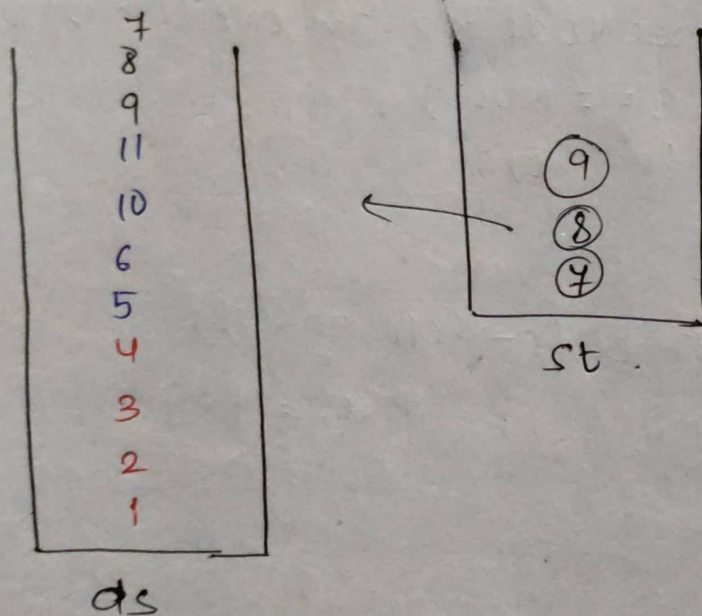 7
8
9
11
10
6
5
4
3
2
1
ds
9
8
7
st.